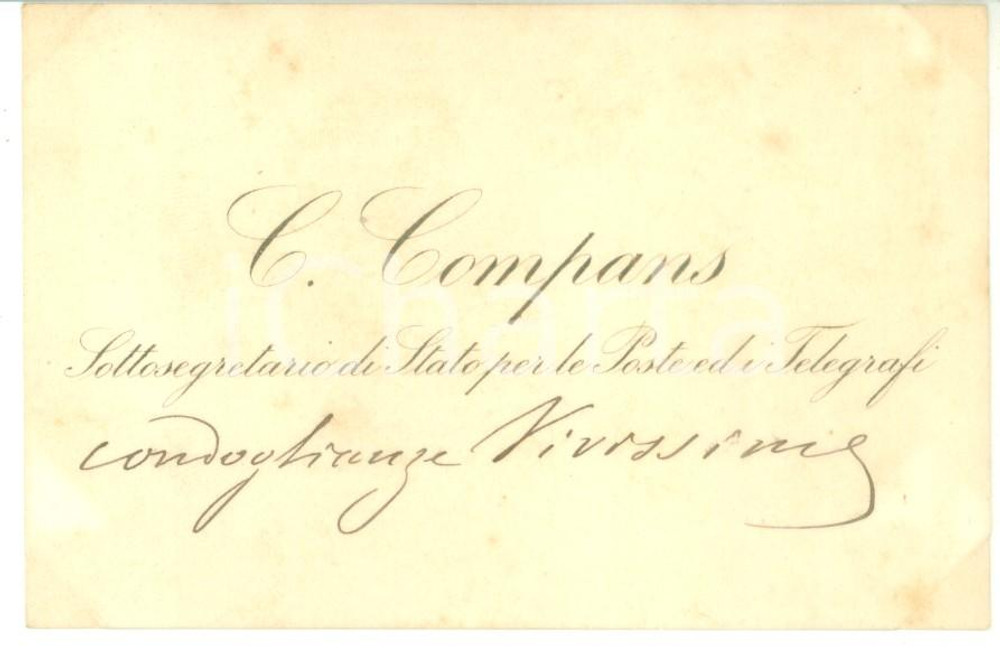 C. Compans
Sottosegretario di Stato per le Poste ed i Telegrafi
condoglianze Vivissime
iCharta